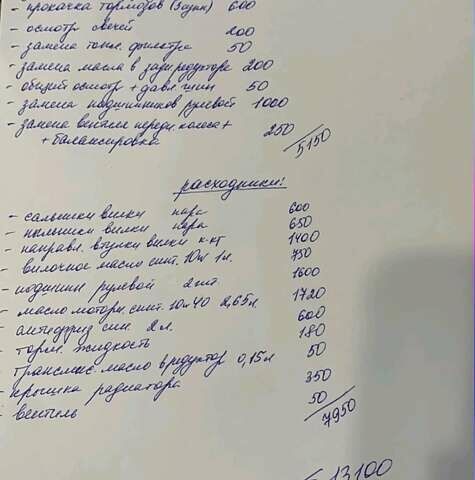 - прокачка тормозов (3 суп.) 600
- осмотр свечей 200
- замена топл. фильтра 50
- замена масла в задн редукторе 200
- общий осмотр + давл. шин 50
- замена подшипников рулевой 1000
- замена вентиля передн. колеса +
+ балансировка 250
5150
расходники:
- сальники вилки пара 600
- пыльники вилки пара 650
- направл. втулки вилки к-кт 1400
- вилочное масло синт. 10w 1л. 750
- подшипн рулевой 2 шт. 1600
- масло моторн. синт. 10w40 2,65л 1720
- антифриз син. 2л. 600
- торм. жидкость 180
- трансмис. масло в редуктор 0,15л 50
- крышка радиатора 350
- вентиль 50
7950
13100